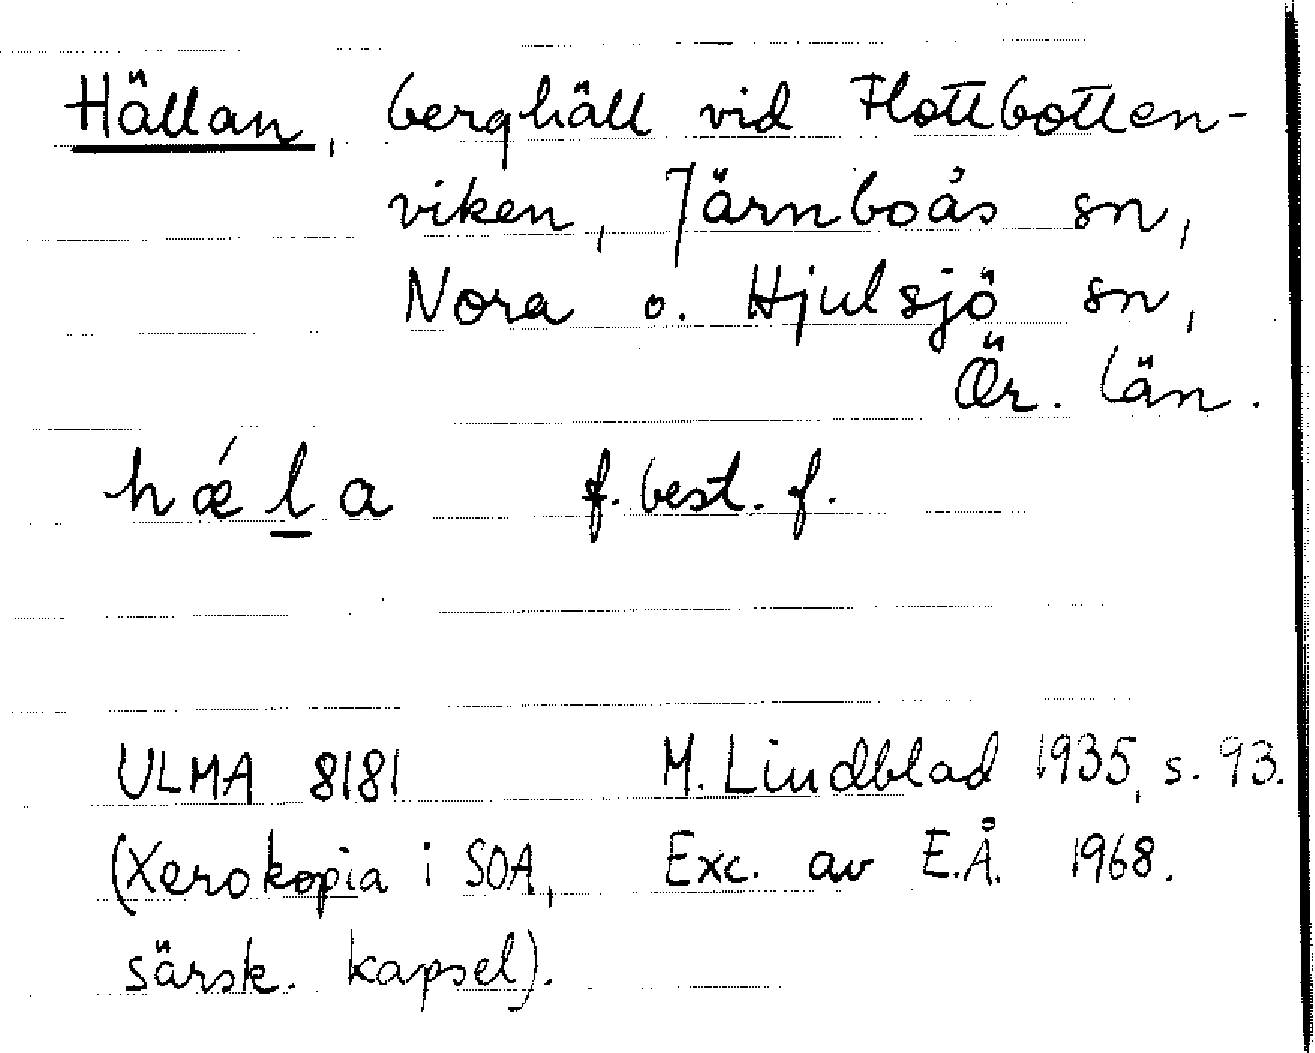 Hällan, berghäll vid Flottbotten-
viken, Järnboås sn,
Nora o. Hjulsjö sn,
Ör. län.
hǽl̲a f. best. f.
ULMA 8181 M. Lindblad 1935, s. 93.
(Xerokopia i SOA, Exc. av E.Å. 1968.
särsk. kapsel).